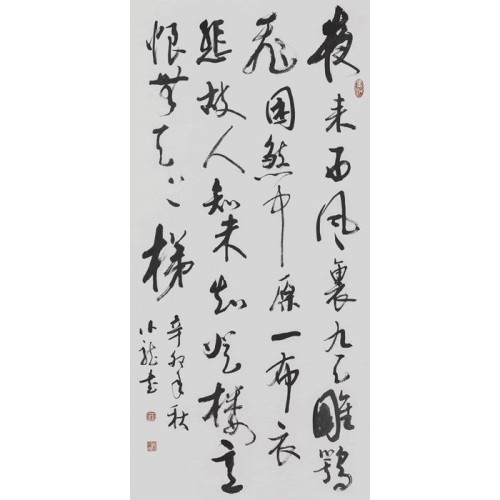 夜来西风裏九天雕鶚
飞困煞中原一布衣
悲故人知未知登楼意
恨无天上梯
辛卯年秋
小龙书